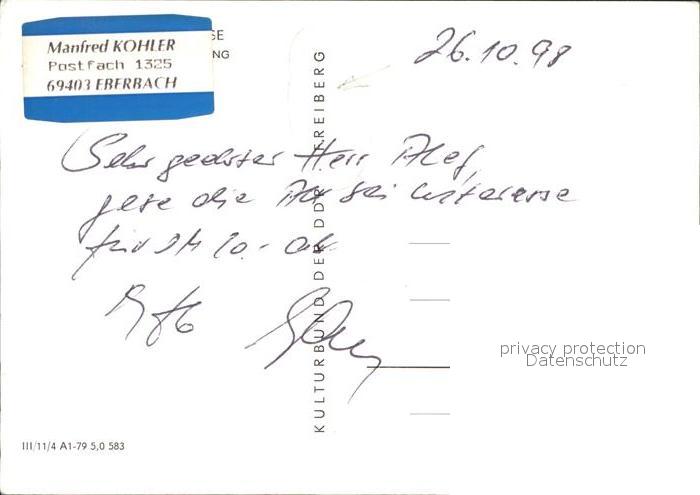 SE
NG
Manfred KOHLER
Postfach 1325
69403 EBERBACH
26.10.98
Sehr geehrter Herr
gebe die bei Interesse
für DM 20.- ab
MfG
KULTURBUND DER DDR FREIBERG
privacy protection
Datenschutz
III/11/4 A1-79 5,0 583